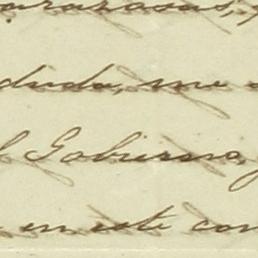 duda, me
Gobierno,
en este con